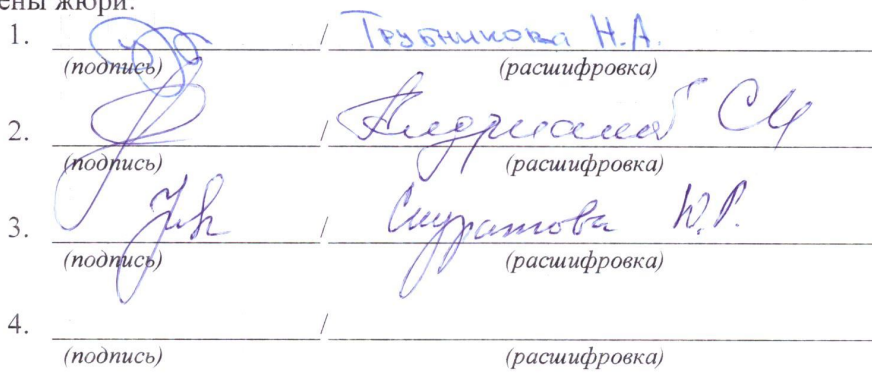 ены жюри:
1. / Трубникова Н.А.
(подпись) (расшифровка)
2. / Андрианов СИ
(подпись) (расшифровка)
3. / Скуратова Ю.Р.
(подпись) (расшифровка)
4. /
(подпись) (расшифровка)